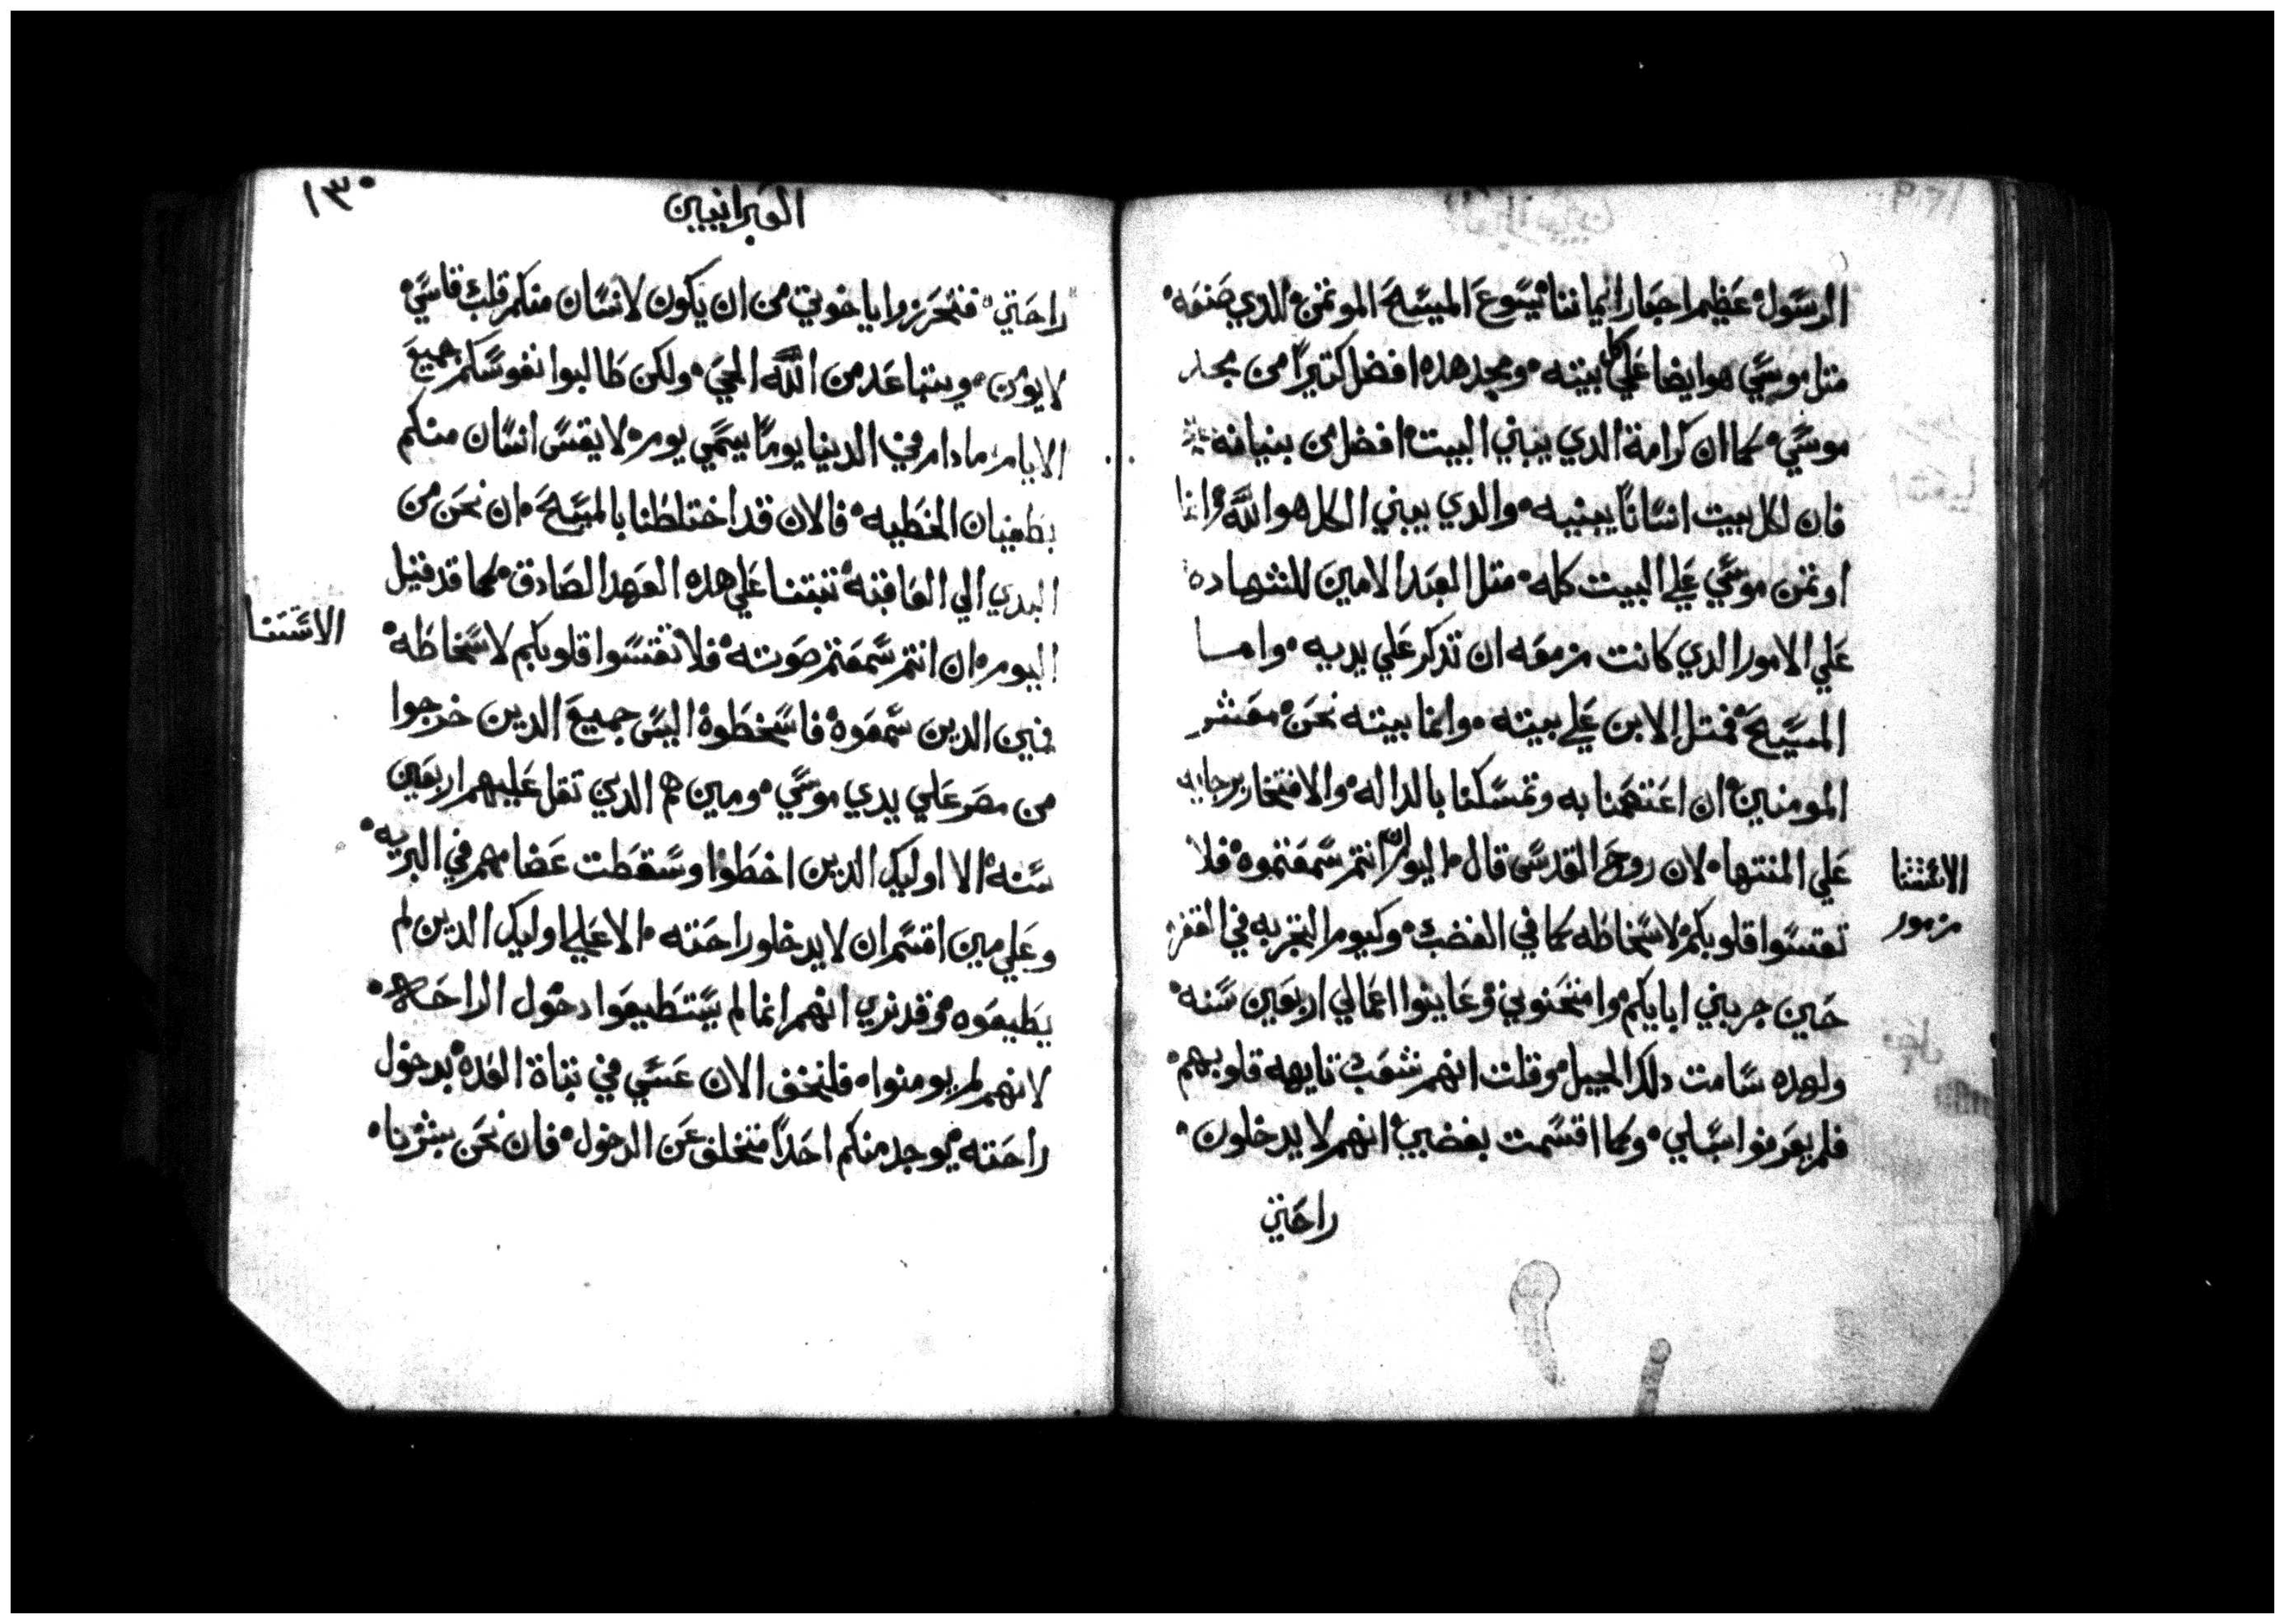 الرسول عظيم احبار ايماننا يسوع المسيح الموتمن الدي صنعه
متل موسي هو ايضا علي كل بيته ومجد هده افضل كتيرًا من مجد
موسي كما ان كرامة الدي يبني البيت افضل من بنيانه
فان لكل بيت انسانًا يبنيه والدي يبني الكل هو الله وانما
اوتمن موسي علي البيت كله متل العبد الامين للشهاده
علي الامور الدي كانت مزمعه ان تدكر علي يديه واما
المسيح فمتل الابن علي بيته وانما بيته نحن معشر
المومنين ان اعتصمنا به وتمسكنا بالداله والافتخار برجايه
علي المنتها لان روح القدس قال اليوم ان انتم سمعتموه فلا
تقسوا قلوبكم لاسخاطه كما في الغضب وكيوم التجربه في القفر
حين جربني ابايكم وامتحنوني وعاينوا اعمالي اربعين سنه
ولهده سامت دلك الجيل وقلت انهم شعب تايهه قلوبهم
فلم يعرفوا سبلي وكما اقسمت بغضبي انهم لا يدخلون
راحتي
الاستتنا
مزمور
١٣٠
العبرانيين
راحتي فتحرزوا يا خوتي من ان يكون لانسان منكم قلب قاسي
لا يومن ويتباعد من الله الحي ولكن طالبوا نفوسكم جميع
الايام ما دام في الدنيا يومًا يسمي يوم لا يقسي انسان منكم
بطغيان الخطيه فالان قد اختلطنا بالمسيح ان نحن من
البدي الي العاقبة تبتنا علي هده العهد الصادق كما قد قيل
اليوم ان انتم سمعتم صوته فلا تقسوا قلوبكم لاسخاطه
فمين الدين سمعوه فاسخطوه اليس جميع الدين خرجوا
من مصر علي يدي موسي ومين هم الدين تقل عليهم اربعين
سنه الا اوليك الدين اخطوا وسقطت عضامهم في البريه
وعلي مين اقسم ان لا يدخلو راحته الا علي اوليك الدين لم
يطيعوه وقد نري انهم انما لم يستطيعوا دخول الراحه
لانهم لم يومنوا فلنخف الان عسي في تباة العده بدخول
راحته يوجد منكم احدًا متخلف عن الدخول فان نحن بشرنا
الاستتنا